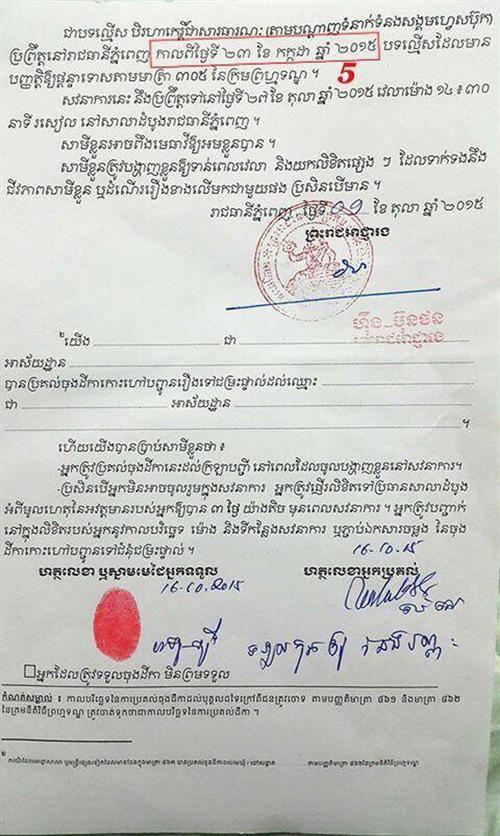 ជាបទល្មើស បរិហារកេរ្តិ៍ជាសាធារណៈ (តាមបណ្តាញទំនាក់ទំនងសង្គមហ្វេសប៊ុក)
ប្រព្រឹត្តនៅរាជធានីភ្នំពេញ កាលពីថ្ងៃទី ២៣ ខែ កក្កដា ឆ្នាំ ២០១៥ បទល្មើសដែលមាន
បញ្ញត្តិឱ្យផ្តន្ទាទោសតាមមាត្រា ៣០៥ នៃក្រមព្រហ្មទណ្ឌ ។ 5
សវនាការនេះ នឹងប្រព្រឹត្តទៅនៅថ្ងៃទី ២៧ ខែ តុលា ឆ្នាំ ២០១៥ វេលាម៉ោង ១៤ ៖ ៣០
នាទី រសៀល នៅសាលាដំបូងរាជធានីភ្នំពេញ ។
សាមីខ្លួនអាចពឹងមេធាវីឱ្យអមខ្លួនបាន ។
សាមីខ្លួនត្រូវបង្ហាញខ្លួនឱ្យទាន់ពេលវេលា និងយកលិខិតផ្សេងៗ ដែលទាក់ទងនឹង
ជីវភាពសាមីខ្លួន ឬដំណើររឿងខាងលើមកជាមួយផង ប្រសិនបើមាន ។
រាជធានីភ្នំពេញ ថ្ងៃទី ០១ ខែ តុលា ឆ្នាំ ២០១៥
ព្រះរាជអាជ្ញារង
ហ៊ឹង ប៊ុនថន
ព្រះរាជអាជ្ញារង
យើង ជា
អាស័យដ្ឋាន
បានប្រគល់ចុងដីកាកោះហៅបញ្ជូនរឿងទៅជម្រះផ្ទាល់ដល់ឈ្មោះ
ជា អាស័យដ្ឋាន
ហើយយើងបានប្រាប់សាមីខ្លួនថា ៖
-អ្នកត្រូវប្រគល់ចុងដីកានេះដល់ក្រឡាបញ្ជី នៅពេលដែលចូលបង្ហាញខ្លួននៅសវនាការ។
-ប្រសិនបើអ្នកមិនអាចចូលរួមក្នុងសវនាការ អ្នកត្រូវផ្ញើរលិខិតទៅប្រធានសាលាដំបូង
អំពីមូលហេតុនៃអវត្តមានរបស់អ្នកឱ្យបាន ៣ ថ្ងៃ យ៉ាងតិច មុនពេលសវនាការ ។ អ្នកត្រូវបញ្ជាក់
នៅក្នុងលិខិតរបស់អ្នកនូវកាលបរិច្ឆេទ ម៉ោង និងទីកន្លែងសវនាការ ឬភ្ជាប់ឯកសារចម្លង នៃចុង
ដីកាកោះហៅបញ្ជូនទៅជំនុំជម្រះផ្ទាល់ ។
16-10-15
ហត្ថលេខា ឬស្នាមមេដៃអ្នកទទួល ហត្ថលេខាអ្នកប្រគល់
16-10-2015
អ្នកដែលត្រូវទទួលចុងដីកា មិនព្រមទទួល
កំណត់សម្គាល់ ៖ កាលបរិច្ឆេទនៃការប្រគល់ចុងដីកាដល់បុគ្គលដទៃក្រៅពីជនត្រូវចោទ តាមបញ្ញត្តិមាត្រា ៤៦១ និងមាត្រា ៤៦២
នៃក្រមនីតិវិធីព្រហ្មទណ្ឌ ត្រូវចាត់ទុកថាជាកាលបរិច្ឆេទនៃការប្រគល់ដីកា ។